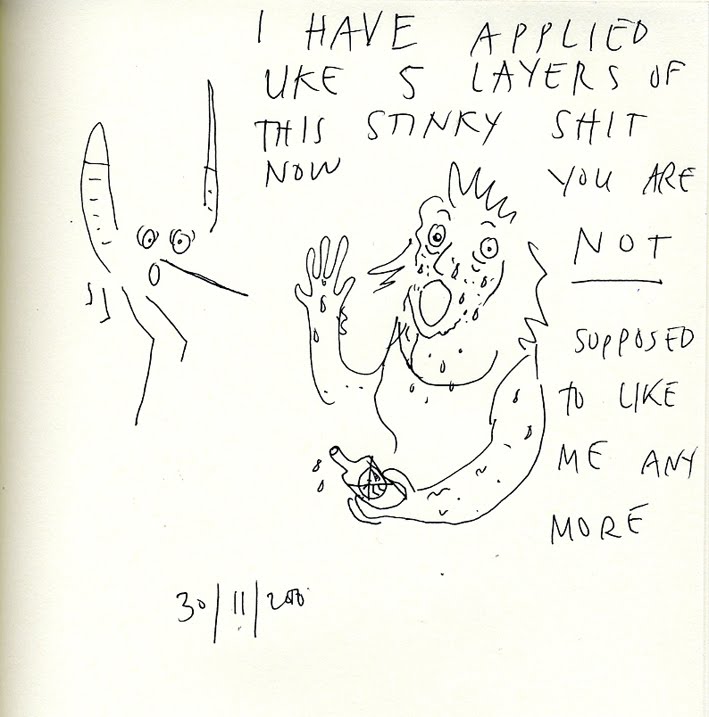 I HAVE APPLIED
LIKE 5 LAYERS OF
THIS STINKY SHIT
NOW YOU ARE
NOT
SUPPOSED
TO LIKE
ME ANY
MORE
30/11/2010